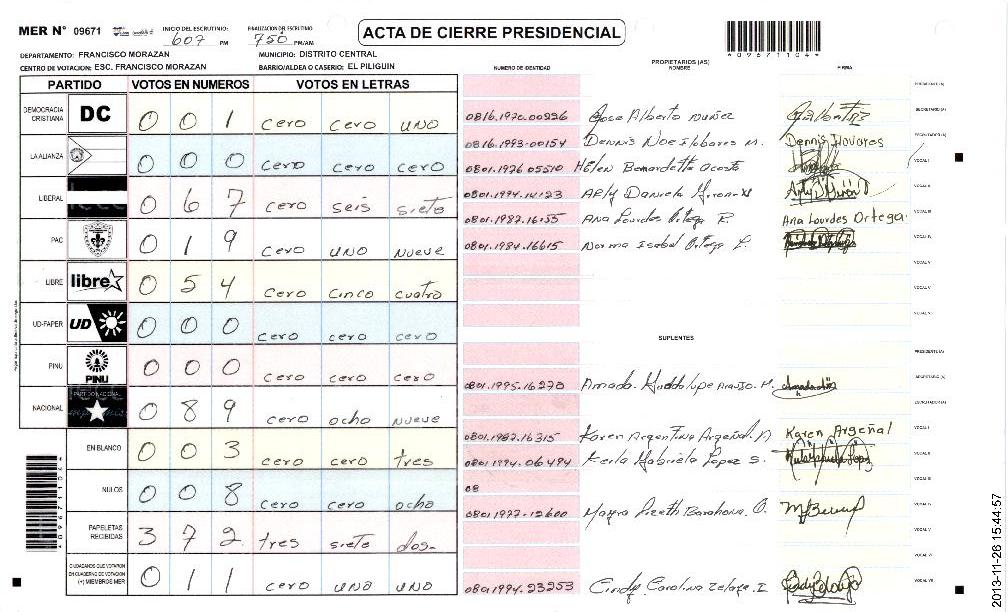 MER N° 09671
INICIO DEL ESCRUTINIO: 607 PM
FINALIZACION DEL ESCRUTINIO 750 PM/AM
ACTA DE CIERRE PRESIDENCIAL
4096711044
DEPARTAMENTO: FRANCISCO MORAZAN
MUNICIPIO: DISTRITO CENTRAL
CENTRO DE VOTACION: ESC. FRANCISCO MORAZAN
BARRIO/ALDEA O CASERIO: EL PILIGUIN
PARTIDO VOTOS EN NUMEROS VOTOS EN LETRAS
DEMOCRACIA CRISTIANA DC 0 0 1 cero cero uno
LA ALIANZA 0 0 0 cero cero cero
LIBERAL 0 6 7 cero seis siete
PAC 0 1 9 cero uno nueve
LIBRE libre 0 5 4 cero cinco cuatro
UD-FAPER UD 0 0 0 cero cero cero
PINU PINU 0 0 0 cero cero cero
NACIONAL 0 8 9 cero ocho nueve
EN BLANCO 0 0 3 cero cero tres
NULOS 0 0 8 cero cero ocho
PAPELETAS RECIBIDAS 3 7 2 tres siete dos-
CIUDADANOS QUE VOTARON EN CUADERNO DE VOTACION (+) MIEMBROS MER 0 1 1 cero uno uno
PROPIETARIOS (AS)
NUMERO DE IDENTIDAD NOMBRE FIRMA
PRESIDENTE (A)
0816.1970.00226 Jose Alberto nuñez SECRETARIO (A)
0816.1993-00154 Dennis Noe M. Dennis ESCRUTADOR (A)
0801.1976 05510 Hélen Benardetta Acosta VOCAL I
0801.1994.14123 Arly Daniela VOCAL II
0801.1982.16155 Ana Lourdes Ortega R. Ana Lourdes Ortega. VOCAL III
0801.1984.16615 Norma Isabel Ortega L. VOCAL IV
VOCAL V
SUPLENTES
PRESIDENTE (A)
0801.1995.16270 Amada Guadalupe Araujo. M. SECRETARIO (A)
ESCRUTADOR (A)
0801.1982.16315 Karen Argentina Argeñal. A Karen Argeñal VOCAL I
0801.1994.06494 Keila Gabriela Lopez S. VOCAL II
08 VOCAL III
0801.1977-12600 Mayra Lizeth Barahona. O. VOCAL IV
VOCAL V
VOCAL VI
0801.1994.23253 Cindy Carolina Zelaya. I VOCAL VII
2013-11-26 15:44:57